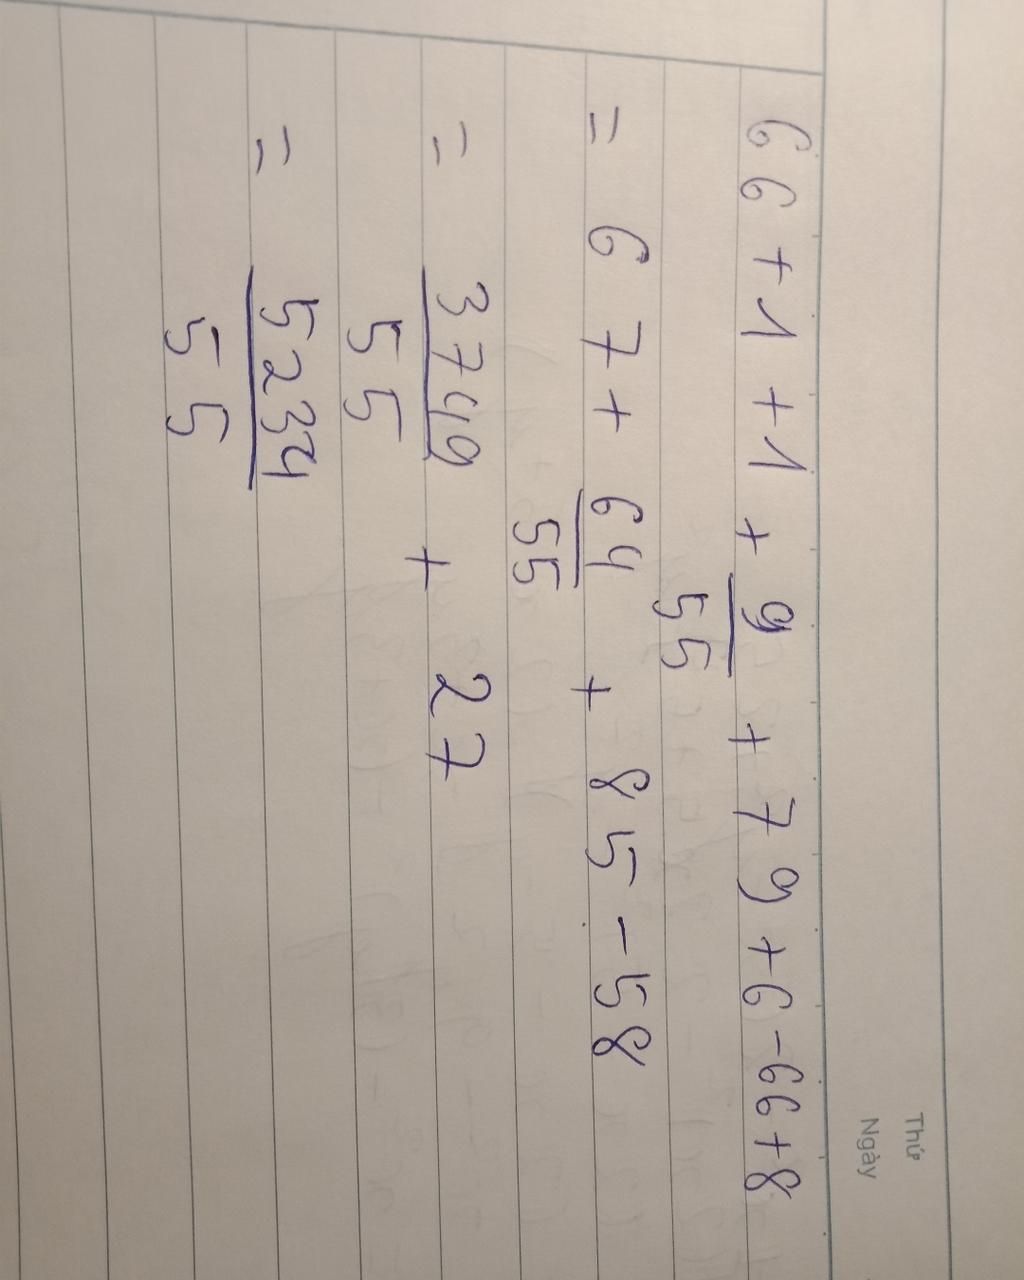 Thứ
Ngày
66 + 1 + 1 + 9/55 + 79 + 6 - 66 + 8
= 67 + 64/55 + 85 - 58
= 3749/55 + 27
= 5234/55